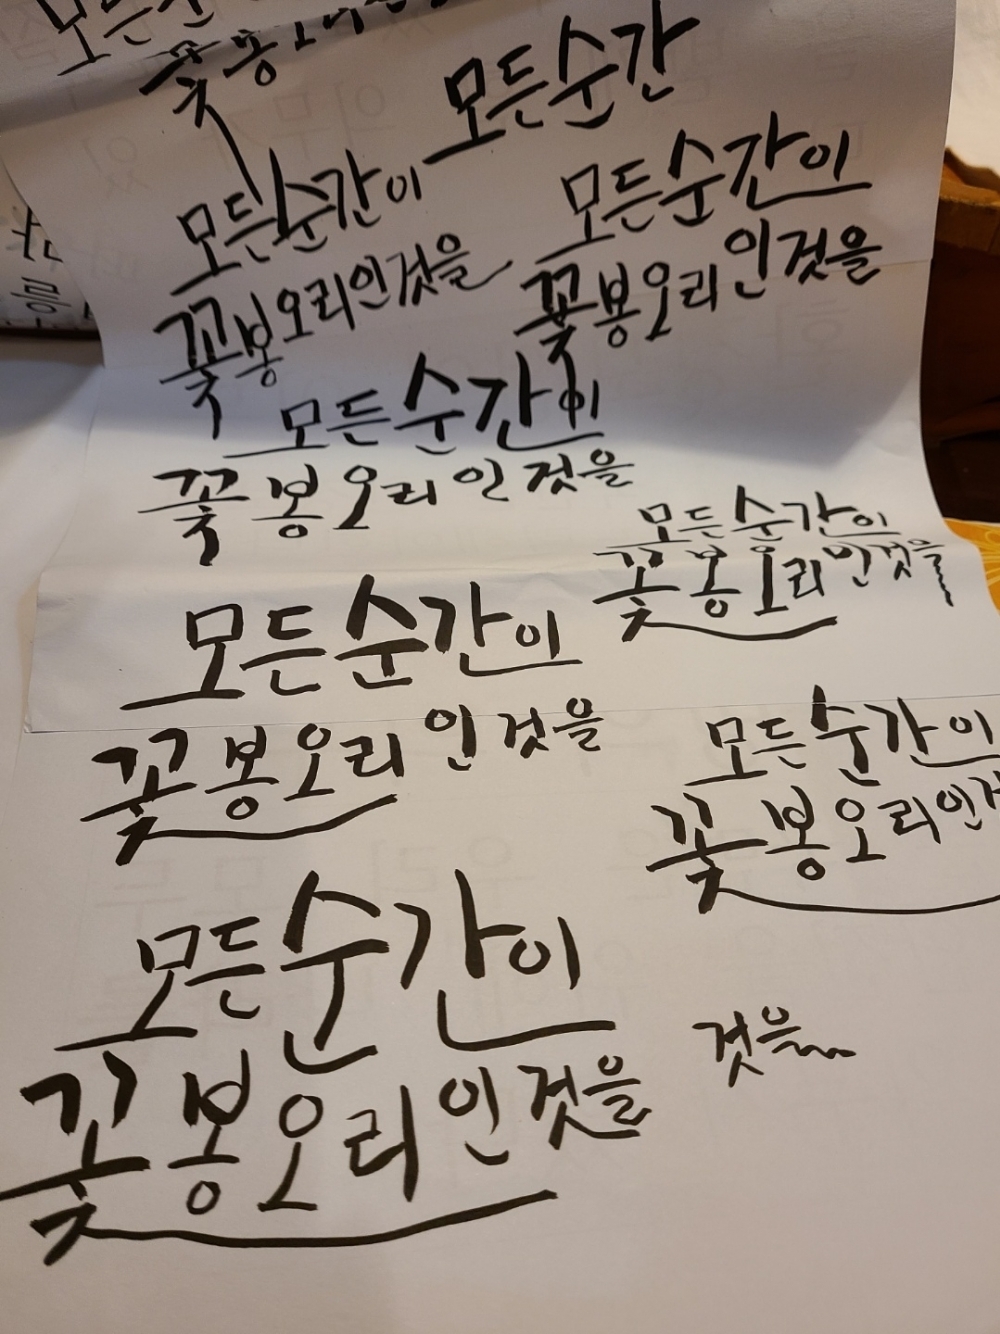 모든순
꽃봉오리
모든순간
모든순간이
꽃봉오리인것을
모든순간이
꽃봉오리인것을
모든순간이
꽃봉오리인것을
모든순간이
꽃봉오리인것을
모든순간이
꽃봉오리인것을
모든순간이
꽃봉오리인것
모든순간이
꽃봉오리인것을
것을